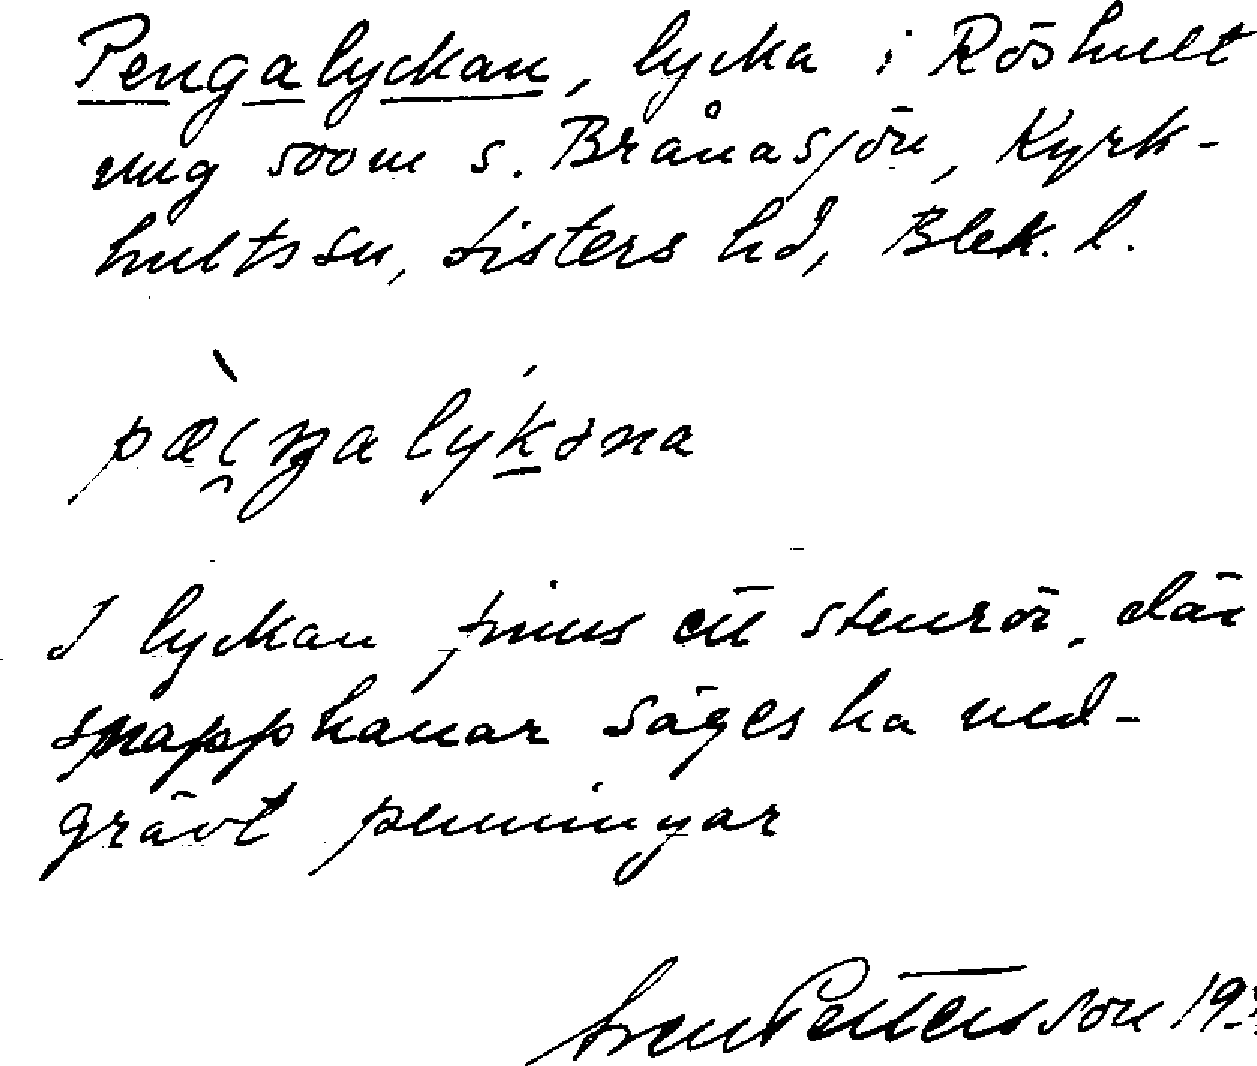 Pengalyckan, lycka i Röshult
ung 500m s. Brånasjön, Kyrk-
hultssn, Listers hd, Blek. l.
I lyckan finns ett stenrör, där
snapphanar säges ha ned-
grävt penningar
Sven Pettersson